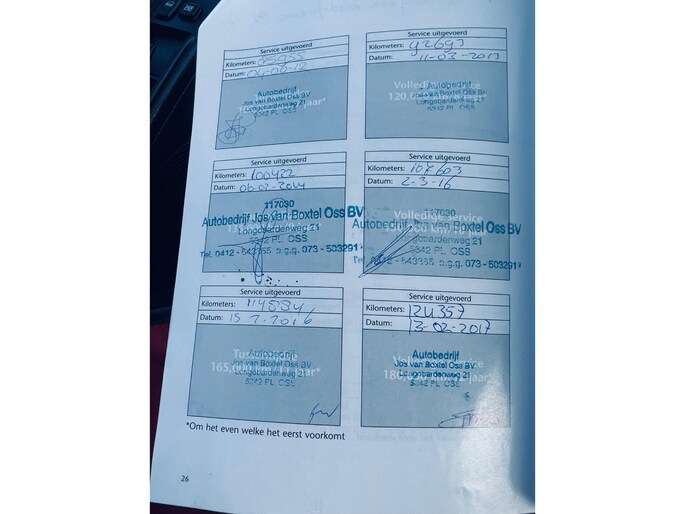 Service uitgevoerd
Kilometers:
Datum:
Autobedrijf
Jos van Boxtel Oss BV
Longobardenweg 21
5342 PL OSS
Service uitgevoerd
Kilometers: 92697
Datum: 11-03-2013
Volledige service
120,000
Autobedrijf
Jos van Boxtel Oss BV
Longobardenweg 21
5342 PL OSS
Service uitgevoerd
Kilometers: 100422
Datum: 06-02-2014
117030
Autobedrijf Jos van Boxtel Oss BV
Longobardenweg 21
5342 PL OSS
Tel. 0412 - 643355 b.g.g. 073 - 503291
Service uitgevoerd
Kilometers: 107603
Datum: 2-3-16
Volledige service
117030
Autobedrijf Jos van Boxtel Oss BV
Longobardenweg 21
5342 PL OSS
Tel. 0412 - 643355 b.g.g. 073 - 503291
Service uitgevoerd
Kilometers: 114884
Datum: 15 2-2016
165,000 km/11 jaar*
Autobedrijf
Jos van Boxtel Oss BV
Longobardenweg 21
5342 PL OSS
Service uitgevoerd
Kilometers: 124357
Datum: 13-02-2017
Volledige service
180,000 km/12 jaar*
Autobedrijf
Jos van Boxtel Oss BV
Longobardenweg 21
5342 PL OSS
*Om het even welke het eerst voorkomt
26